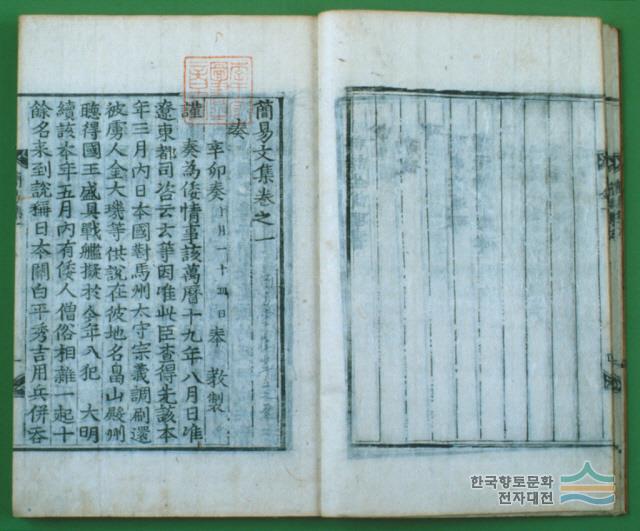 簡易文集卷之一
奏
辛卯奏 十月二十四日奉 教製
謹
奏為倭情事該萬曆十九年八月日准
遼東都司咨云云等因准此臣查得先該本
年三月內日本國對馬州太守宗義調刷還
被虜人金大璣等供說在彼地名畠山殿州
聽得國王盛具戰艦擬於今年入犯 大明
續該本年五月內有倭人僧俗相雜一起十
餘名來到說稱日本關白平秀吉用兵併吞
한국향토문화
전자대전